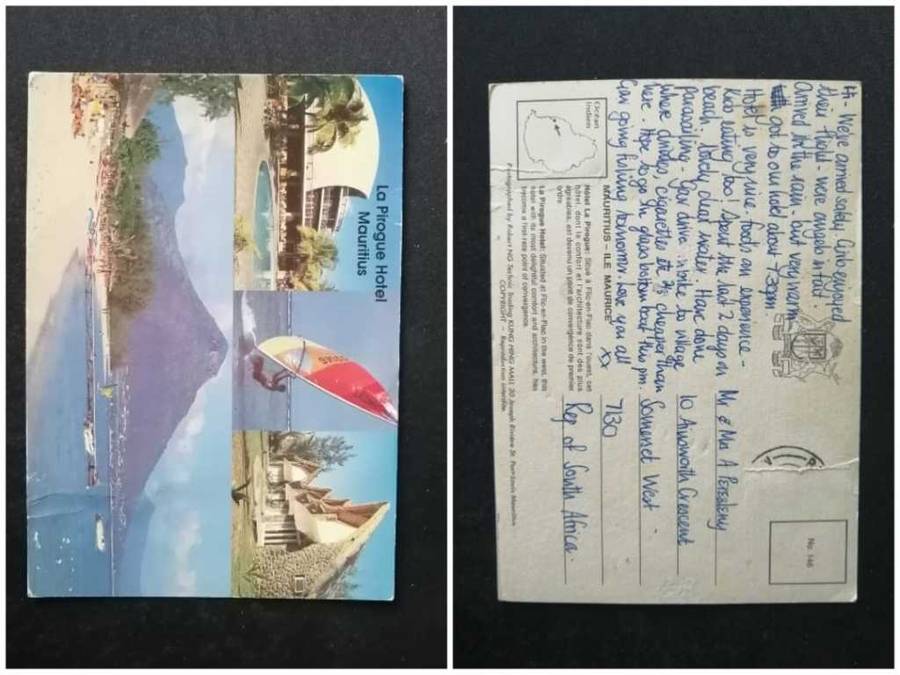 La Pirogue Hotel
Mauritius
Hi - We've arrived safely. Girls enjoyed
their flight - were angels in fact.
Arrived in the rain - but very warm
got to our hotel about 7.30pm.
Hotel is very nice - food an experience -
Kids eating too! Spent the last 2 days on
beach. lovely clear water. Have done
parasailing - Gav drive
to village
where drinks, cigarettes etc ½ cheaper than
here. Hope to go in glass bottom boat this pm.
Gav going fishing tomorrow. Love you all
xx
Océan
Indien
MAURITIUS - ILE MAURICE
Hôtel La Pirogue: Situé à Flic-en-Flac dans l'ouest, cet
hôtel, dont le confort et l'architecture sont des plus
agréables, est devenu un point de convergence de premier
ordre.
La Pirogue Hotel: Situated at Flic-en-Flac in the west, this
hotel with its most delightful comfort and architecture, has
become a first-rate point of convergence.
Photographed by Robert NG Technic Trading KUNG HING MALL 20 Joseph Rivière St. Port-Louis Mauritius
COPYRIGHT - Reproduction interdite.
No. 146
Mr & Mrs A
10 Ainsworth Crescent
Somerset West -
7130
Rep of South Africa -